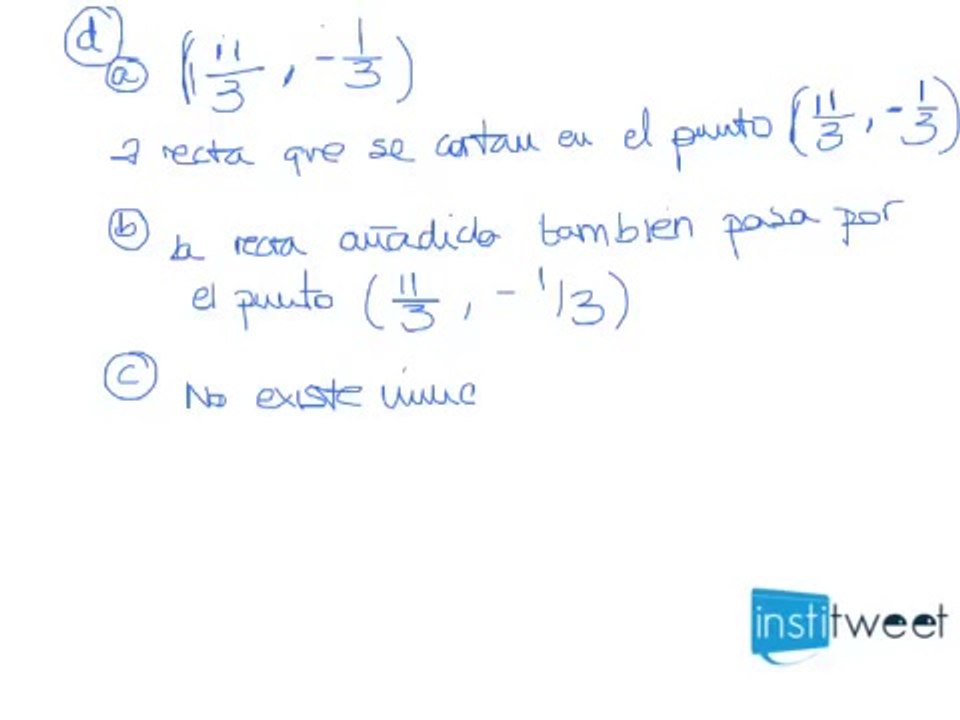 d
a (11/3, -1/3)
2 recta que se cortan en el punto (11/3, -1/3)
b la recta añadida también pasa por
el punto (11/3, -1/3)
c No existe
institweet